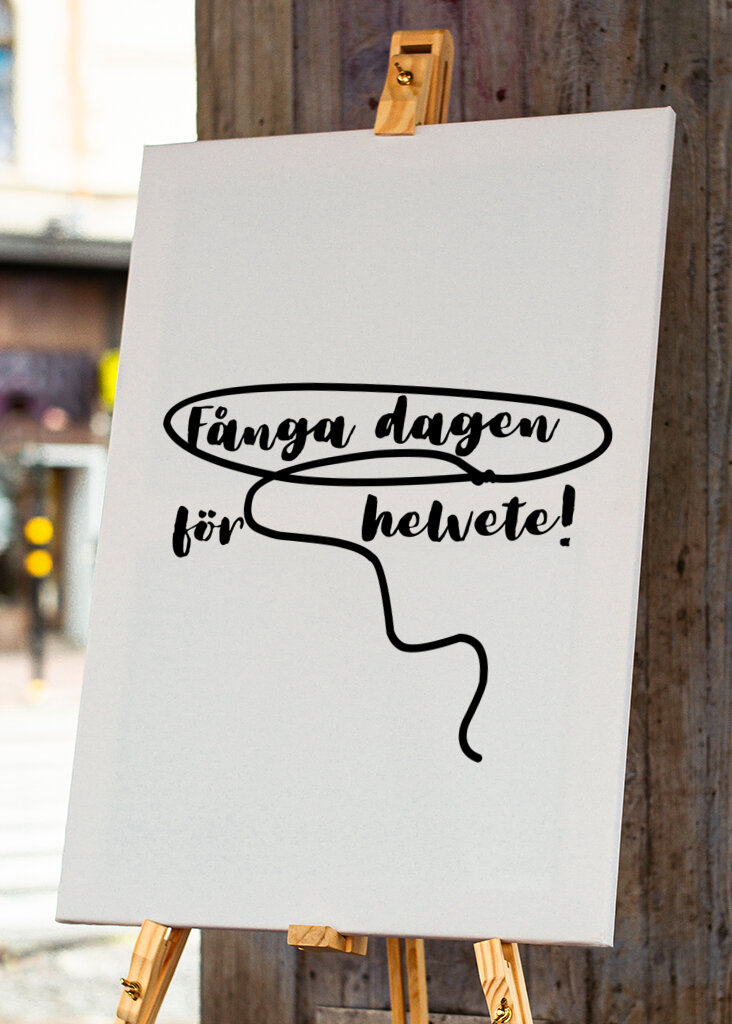 Fånga dagen
för helvete!